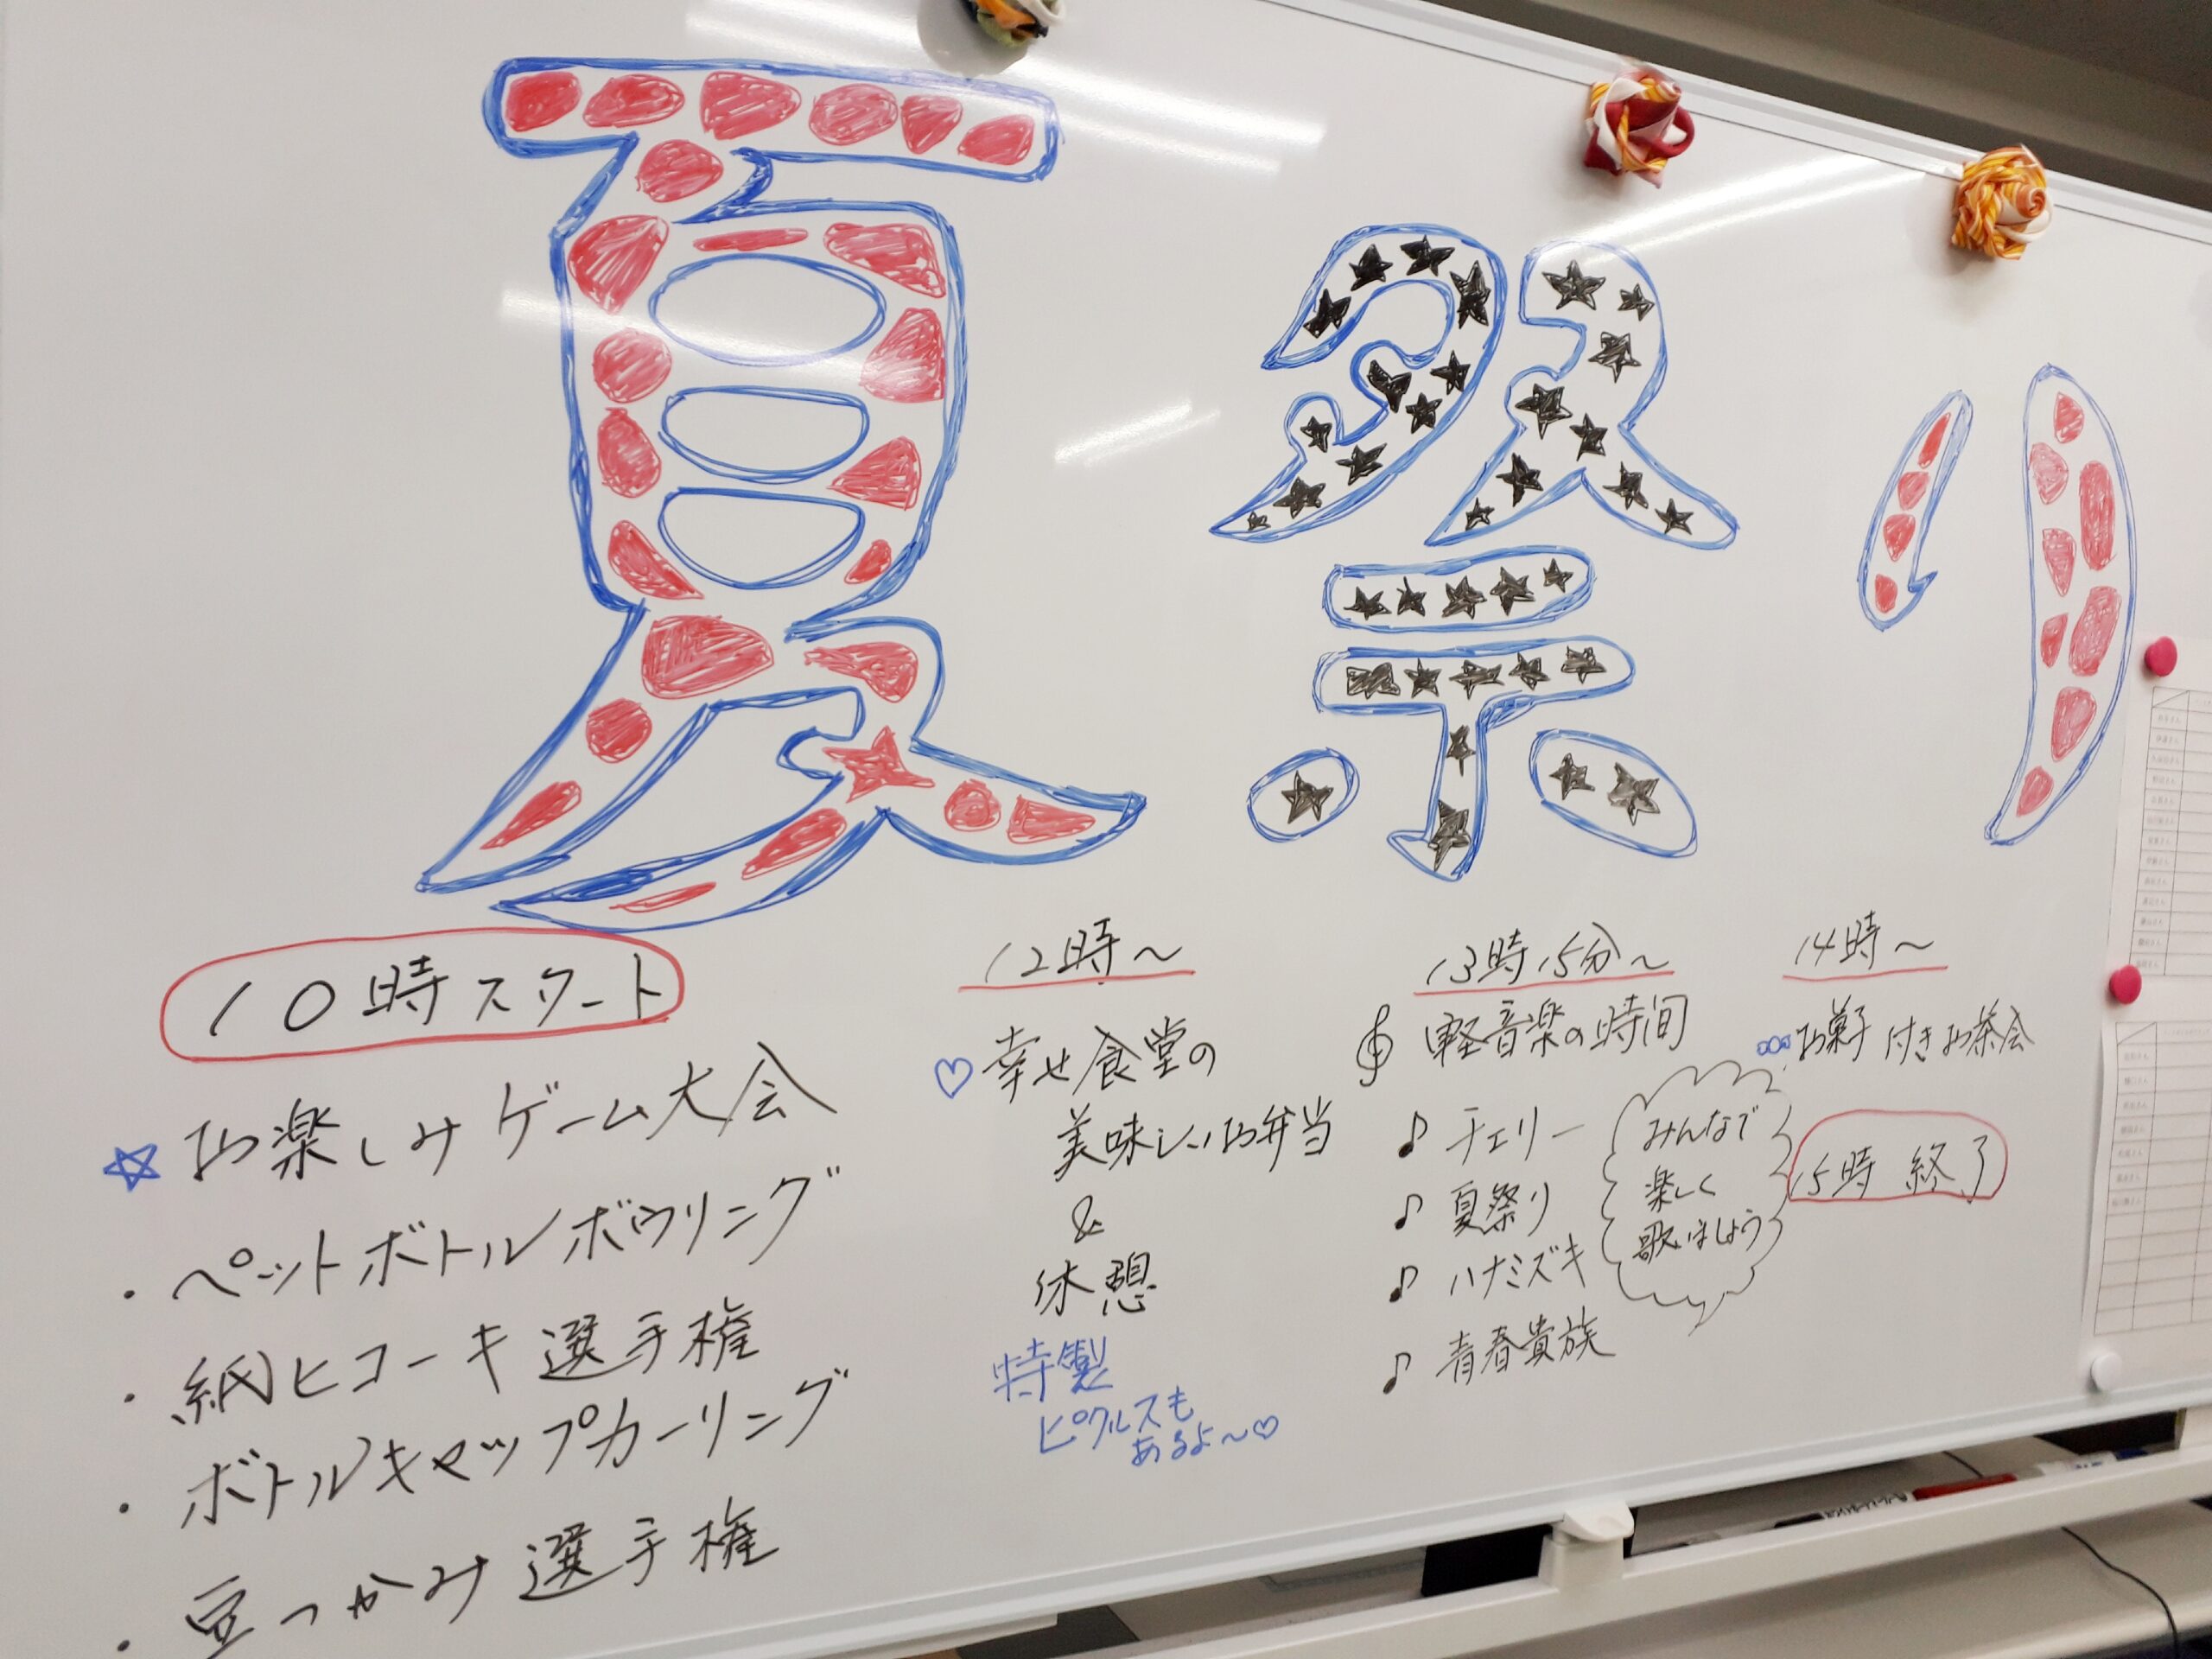 夏祭り
10時スタート
☆お楽しみゲーム大会
・ペットボトルボウリング
・紙ヒコーキ選手権
・ボトルキャップカーリング
・豆つかみ選手権
12時〜
♡幸せ食堂の
美味しいお弁当
&
休憩
特製
ピクルスも
あるよ〜♡
13時15分〜
軽音楽の時間
♪チェリー
♪夏祭り
♪ハナミズキ
♪青春貴族
みんなで
楽しく
歌いましょう
14時〜
お菓子付きお茶会
15時 終了